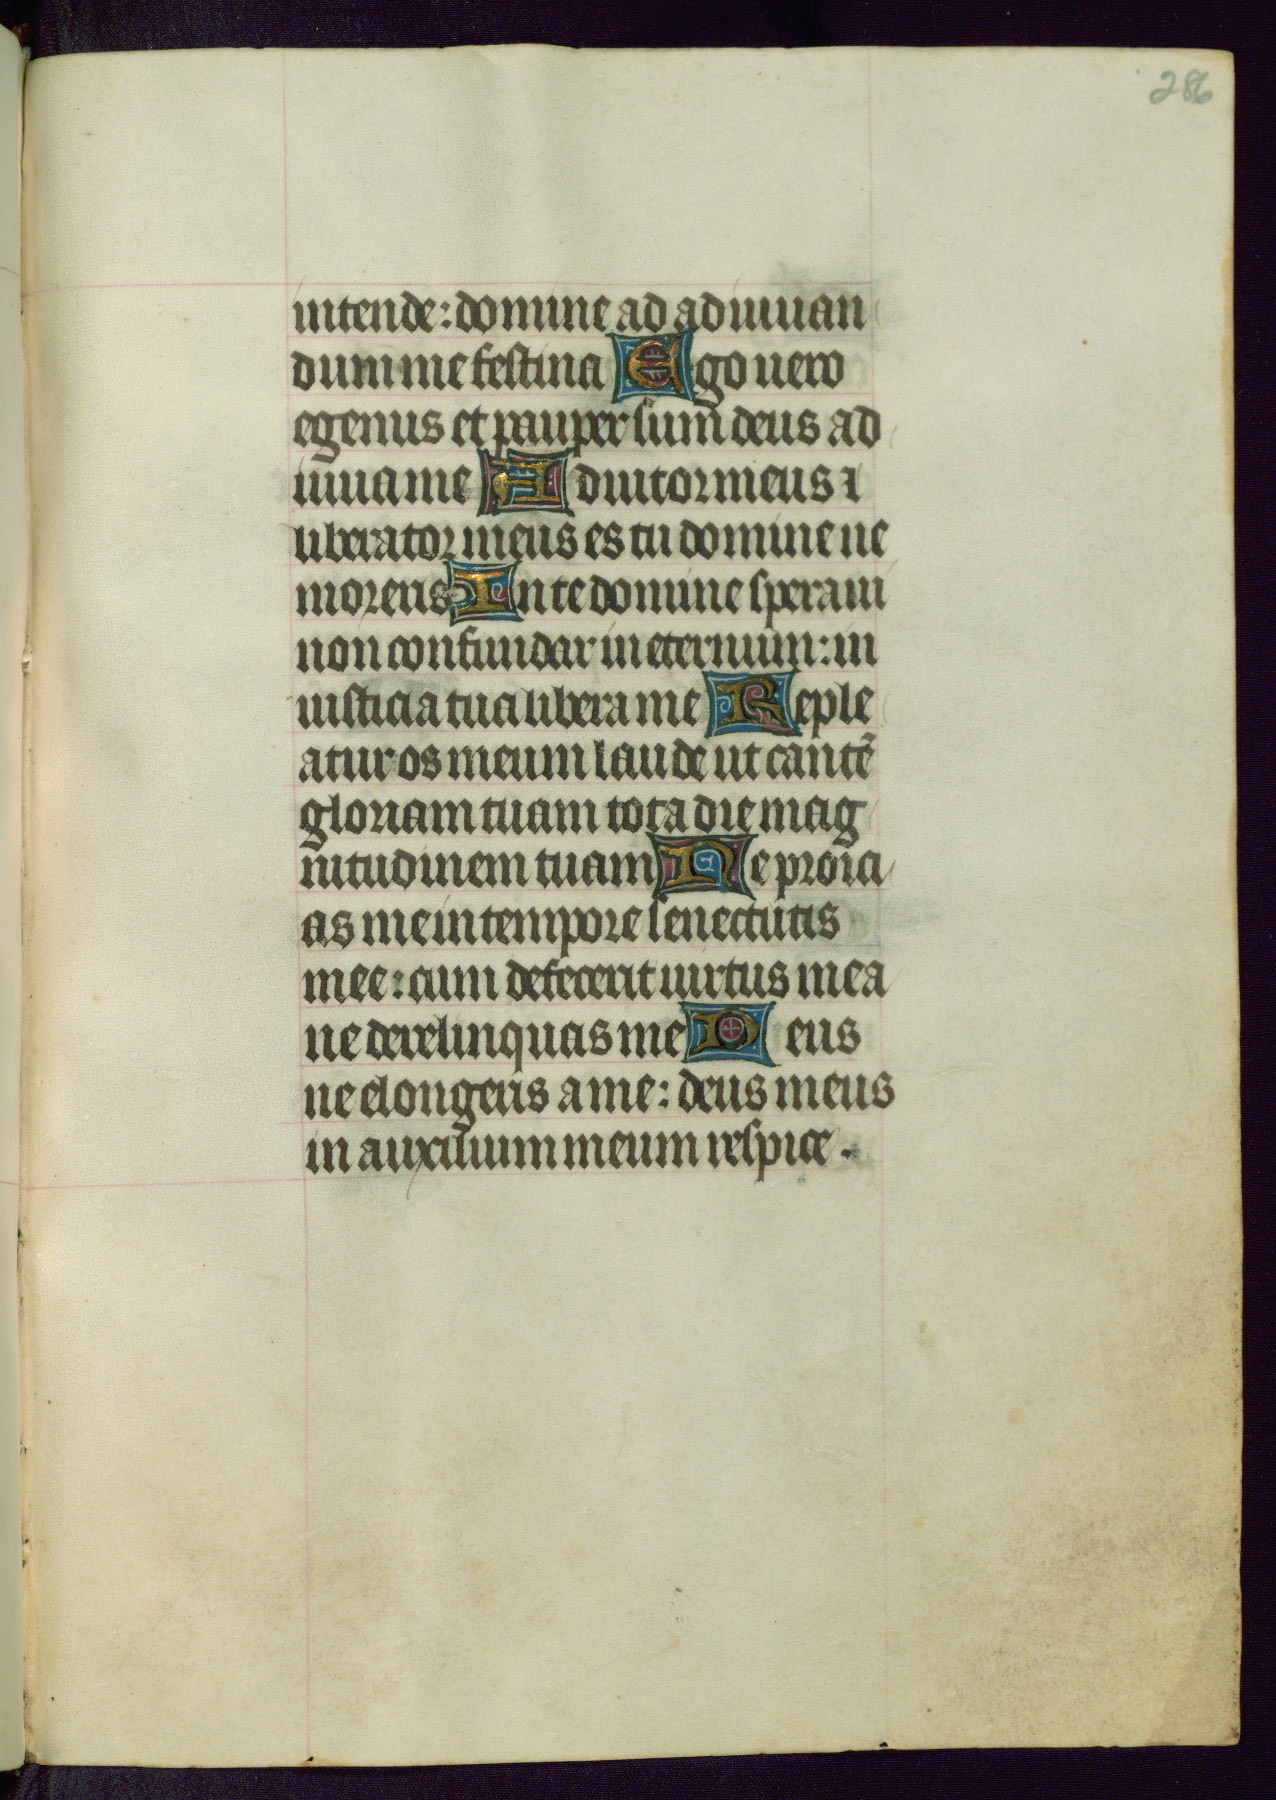 286
intende: domine ad adiuuan
dum me festina Ego uero
egenus et pauper sum deus ad
iuua me Adiutor meus ⁊
liberator meus es tu domine ne
moreris In te domine speraui
non confundar in eternum: in
iusticia tua libera me Reple
atur os meum laude ut cantē
gloriam tuam tota die mag
nitudinem tuam Ne proici
as me in tempore senectutis
mee: cum defecerit uirtus mea
ne derelinquas me Deus
ne elongeris a me: deus meus
in auxilium meum respice.